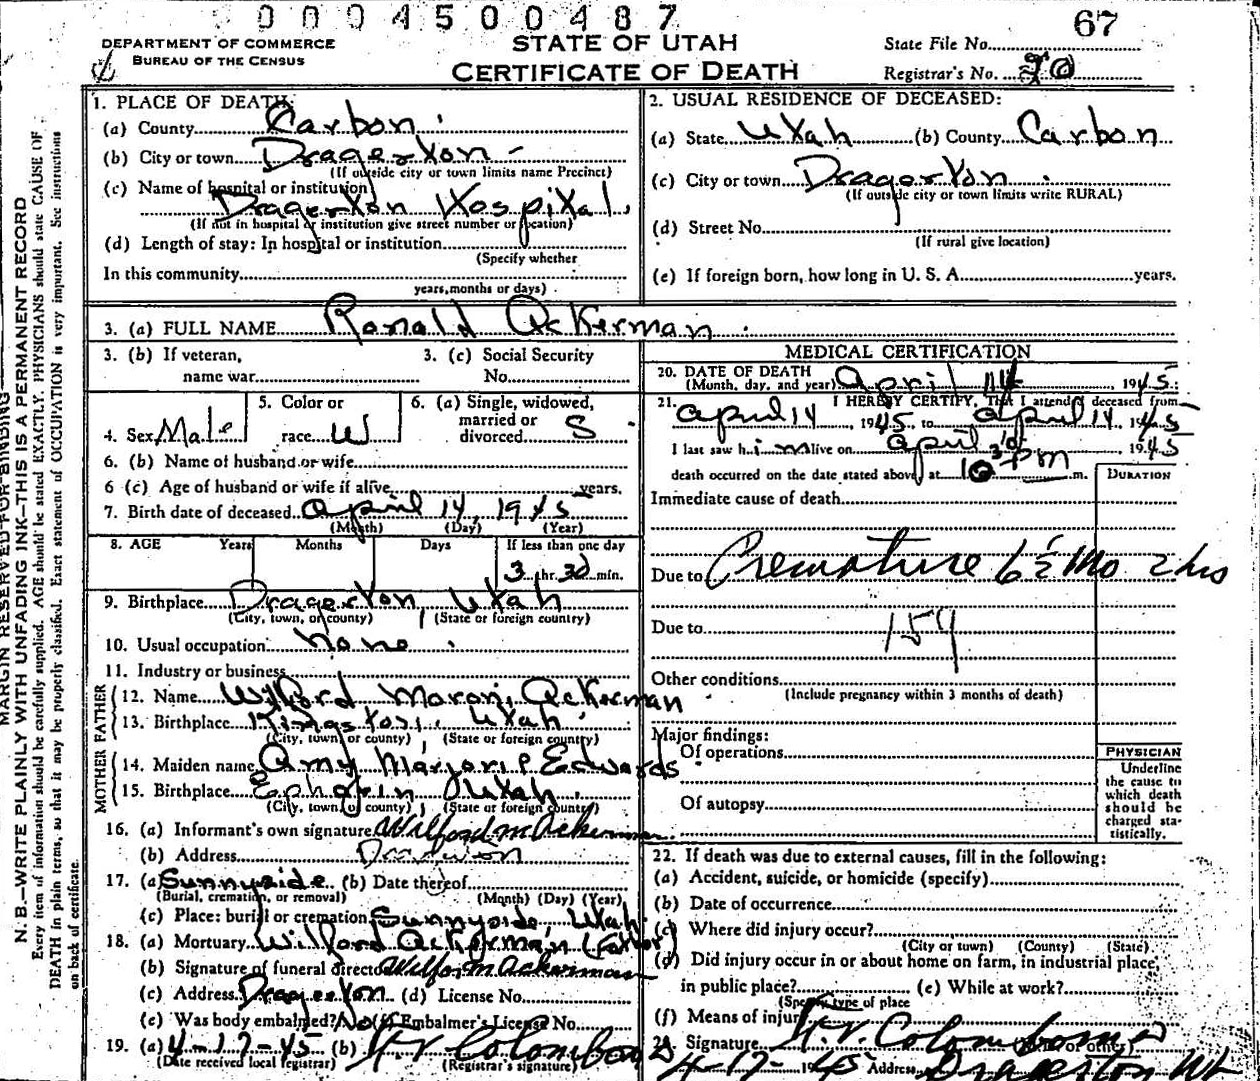 0 0 0 4 5 0 0 4 8 7
67
DEPARTMENT OF COMMERCE
BUREAU OF THE CENSUS
STATE OF UTAH
CERTIFICATE OF DEATH
State File No.
Registrar's No.
MARGIN RESERVED FOR BINDING
N. B.—WRITE PLAINLY WITH UNFADING INK—THIS IS A PERMANENT RECORD
Every item of information should be carefully supplied. AGE should be stated EXACTLY. PHYSICIANS should state CAUSE OF
DEATH in plain terms, so that it may be properly classified. Exact statement of OCCUPATION is very important. See instructions
on back of certificate.
1. PLACE OF DEATH:
(a) County Carbon
(b) City or town Dragerton
(If outside city or town limits name Precinct)
(c) Name of hospital or institution
Dragerton Hospital
(If not in hospital or institution give street number or location)
(d) Length of stay: In hospital or institution
(Specify whether
In this community
years, months or days)
2. USUAL RESIDENCE OF DECEASED:
(a) State Utah (b) County Carbon
(c) City or town Dragerton
(If outside city or town limits write RURAL)
(d) Street No.
(If rural give location)
(e) If foreign born, how long in U. S. A. years.
3. (a) FULL NAME Ronald Ackerman
3. (b) If veteran,
name war
3. (c) Social Security
No.
4. Sex Male
5. Color or
race W
6. (a) Single, widowed,
married or
divorced S
6. (b) Name of husband or wife
6 (c) Age of husband or wife if alive years.
7. Birth date of deceased April 14, 1945
(Month) (Day) (Year)
8. AGE Years Months Days If less than one day
3 hr. 30 min.
9. Birthplace Dragerton, Utah
(City, town, or county) (State or foreign country)
10. Usual occupation none
11. Industry or business
FATHER
12. Name Wilford Moroni Ackerman
13. Birthplace Kingston, Utah
(City, town, or county) (State or foreign country)
MOTHER
14. Maiden name Amy Marjorie Edwards
15. Birthplace Ephraim Utah
(City, town, or county) (State or foreign country)
16. (a) Informant's own signature Wilford M Ackerman
(b) Address
17. (a) Sunnyside (b) Date thereof
(Burial, cremation, or removal) (Month) (Day) (Year)
(c) Place: burial or cremation Sunnyside, Utah
18. (a) Mortuary Wilford Ackerman (Father)
(b) Signature of funeral director Wilford M Ackerman
(c) Address Dragerton (d) License No.
(e) Was body embalmed? No (f) Embalmer's License No.
19. (a) 4-17-45 (b)
(Date received local registrar) (Registrar's signature)
MEDICAL CERTIFICATION
20. DATE OF DEATH
(Month, day, and year) April 14, 1945
21. I HEREBY CERTIFY, That I attended deceased from
April 14, 1945, to April 14, 1945
I last saw him alive on April 1945
death occurred on the date stated above at 10 pm m.
DURATION
Immediate cause of death
Due to Premature 6½ mo 2 hrs
Due to 159
Other conditions
(Include pregnancy within 3 months of death)
Major findings:
Of operations
Of autopsy
PHYSICIAN
Underline
the cause to
which death
should be
charged sta-
tistically.
22. If death was due to external causes, fill in the following:
(a) Accident, suicide, or homicide (specify)
(b) Date of occurrence
(c) Where did injury occur?
(City or town) (County) (State)
(d) Did injury occur in or about home on farm, in industrial place,
in public place? (e) While at work?
(Specify type of place
(f) Means of injury
Signature
4-17-1945 Address Dragerton